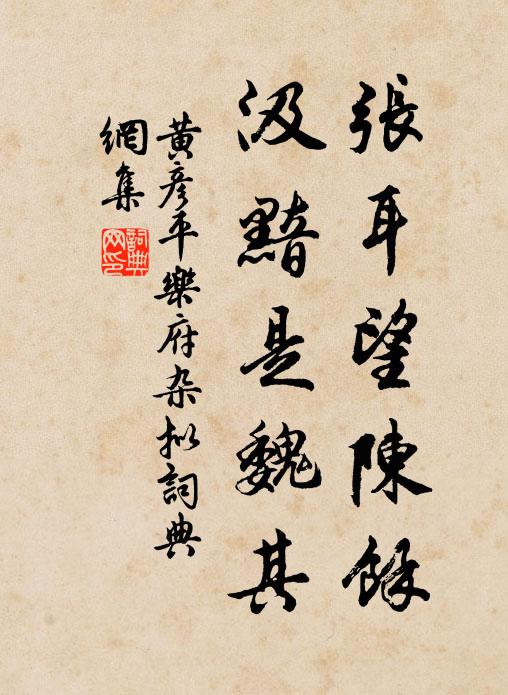 張耳望陳餘
汲黯是魏其
黃彥平樂府杂拟詞典
網集
詞典
网印